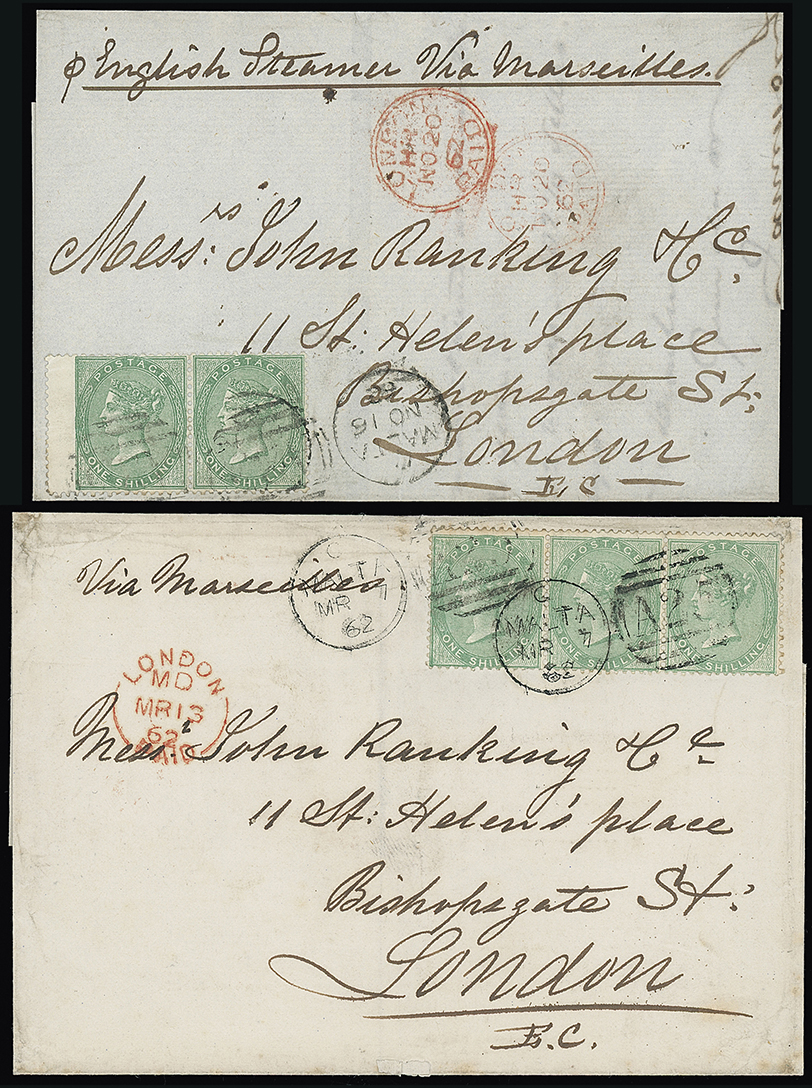 p English Steamer Via Marseilles.
LONDON
HR
NO 20
62
PAID
HR
NO 20
62
PAID
Messrs: John Ranking & Co.
11 St: Helen's place
Bishopsgate St:
London
E.C
POSTAGE
ONE SHILLING
POSTAGE
ONE SHILLING
MALTA
NO 16
62
Via Marseilles
C
MALTA
MR 7
62
POSTAGE
ONE SHILLING
POSTAGE
ONE SHILLING
ONE SHILLING
C
MALTA
MR 7
62
A25
LONDON
MD
MR 13
62
PAID
Messr: John Ranking & Co
11 St: Helen's place
Bishopsgate St:
London
E.C.